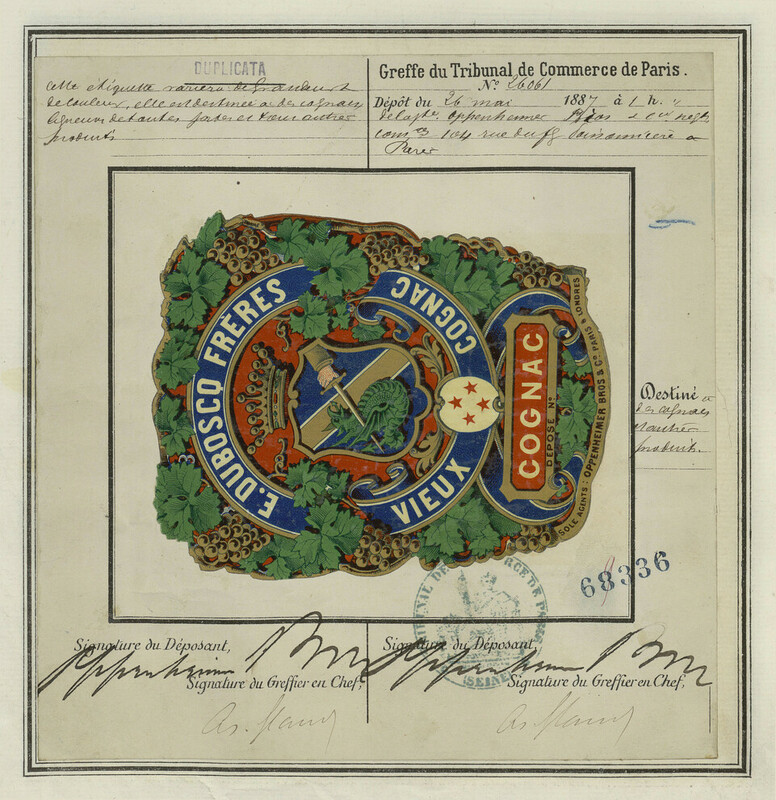 DUPLICATA
Cette étiquette variera de grandeur et
de couleur, elle est destinée à des cognacs
liqueurs de toutes sortes et tous autres
produits
Greffe du Tribunal de Commerce de Paris.
N° 26061
Dépôt du 26 mai 1887 à 1 h.
Oppenheimer
104 rue du fg Poissonnière à
Paris
E. DUBOSCQ FRÈRES
VIEUX COGNAC
COGNAC
DÉPOSÉ N°
SOLE AGENTS: OPPENHEIMER BROS & Co PARIS & LONDRES
Destiné à
des cognacs
et autres
produits.
68336
TRIBUNAL DE COMMERCE DE PARIS
(SEINE)
Signature du Déposant,
Oppenheimer
Signature du Greffier en Chef,
Signature du Déposant,
Oppenheimer
Signature du Greffier en Chef,